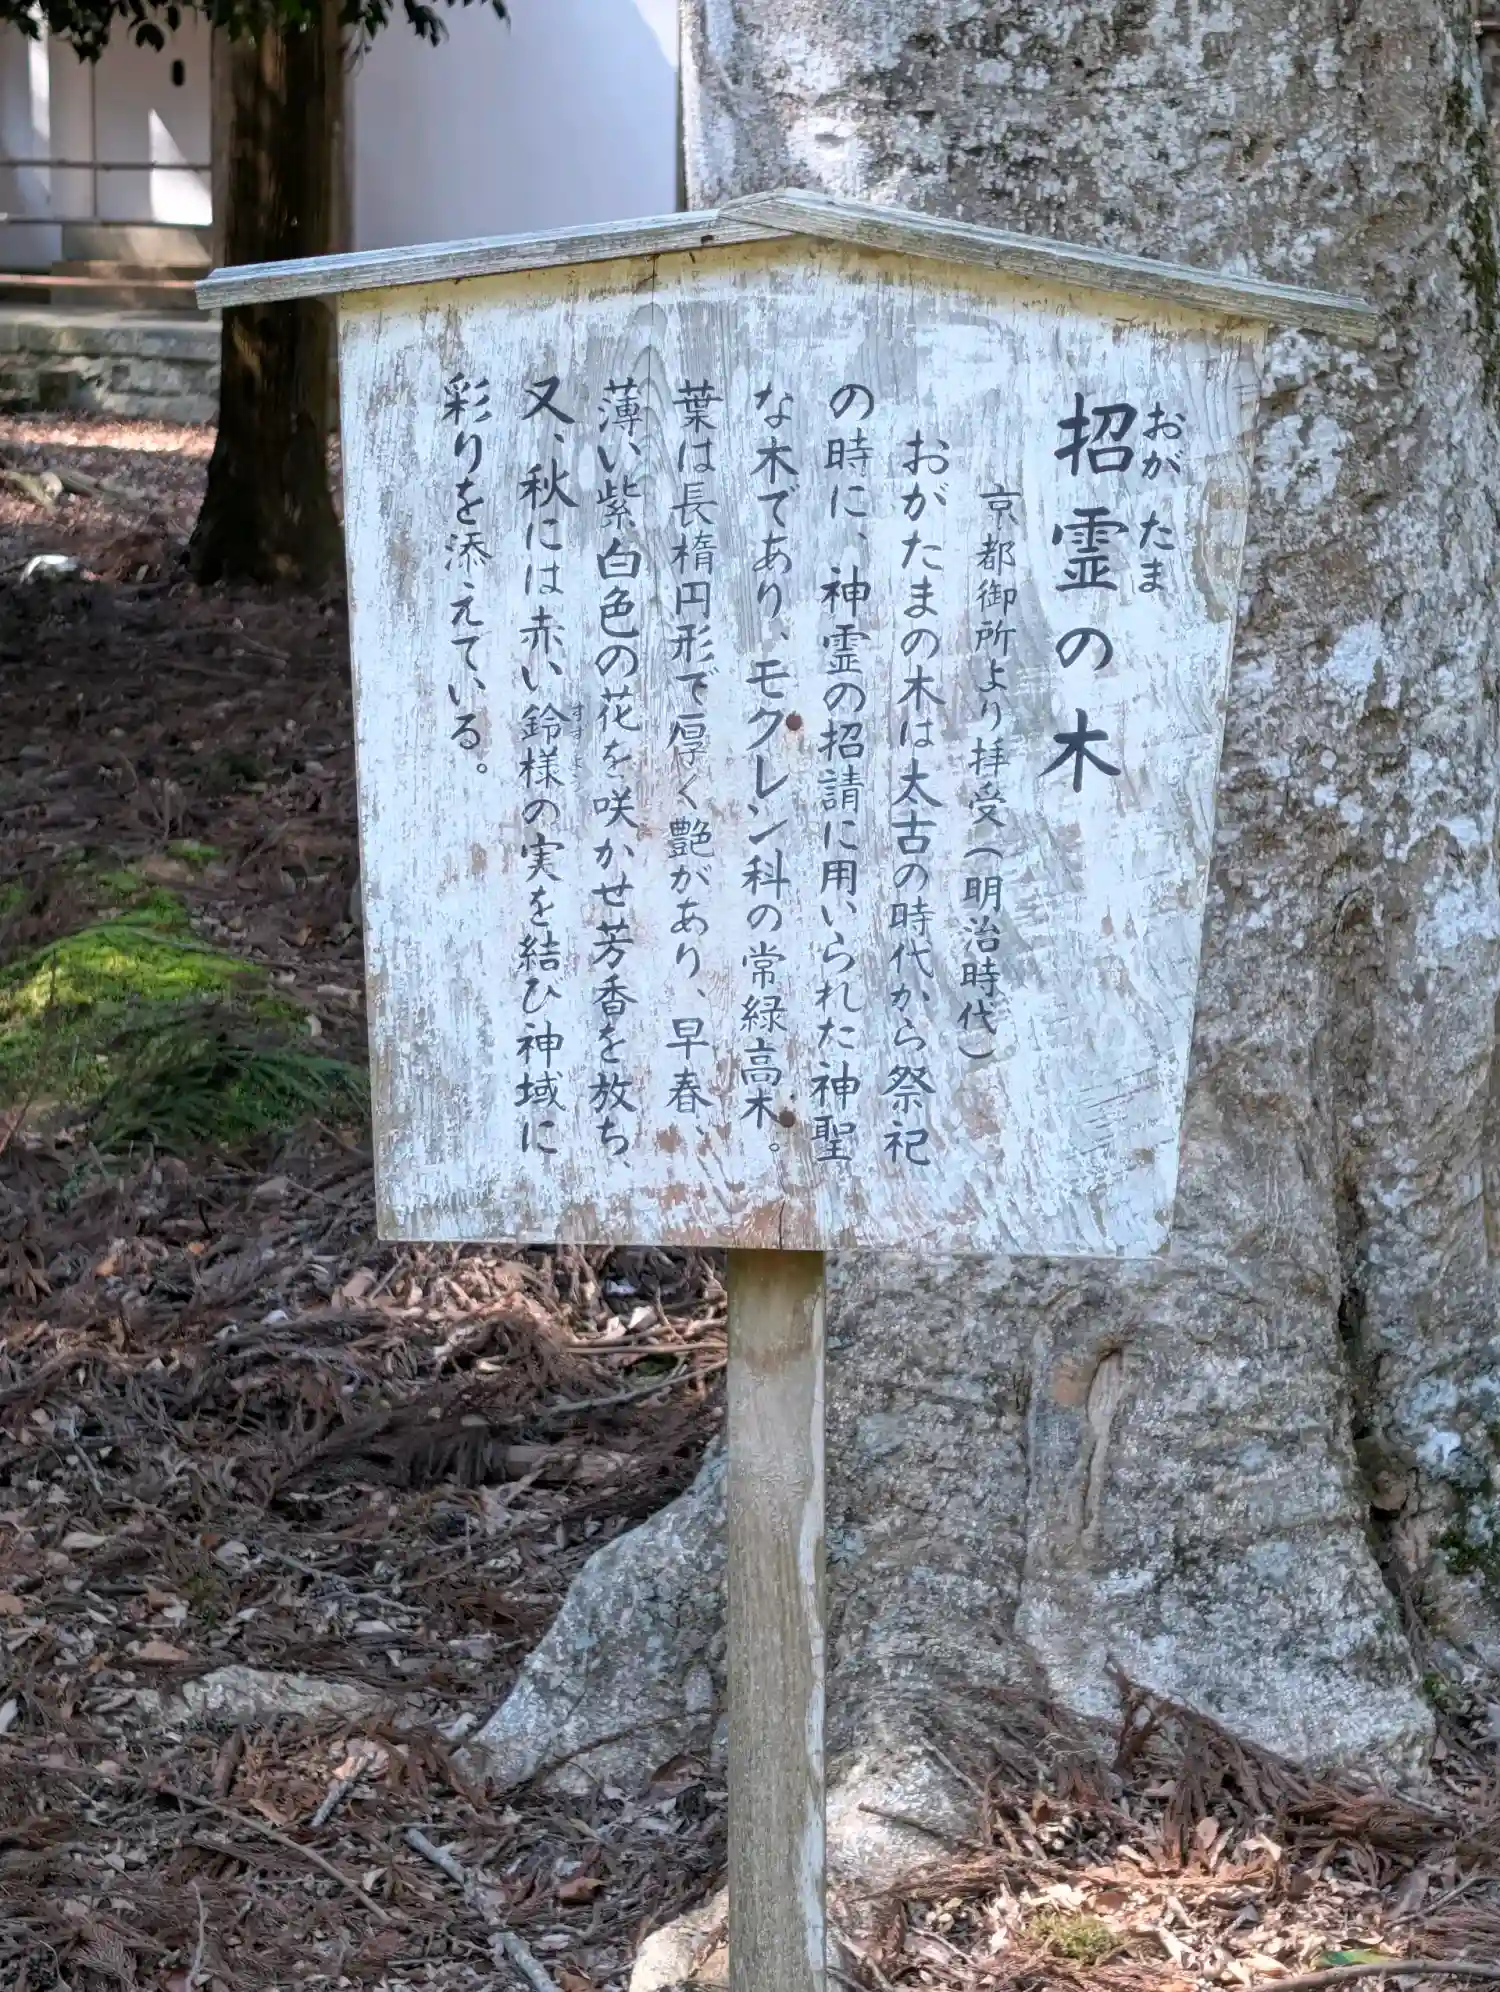 招霊の木
おがたま
京都御所より拝受(明治時代)
おがたまの木は太古の時代から祭祀
の時に、神霊の招請に用いられた神聖
な木であり、モクレン科の常緑高木。
葉は長楕円形で厚く艶があり、早春、
薄い紫白色の花を咲かせ芳香を放ち、
又、秋には赤い鈴様の実を結ひ神域に
すずよう
彩りを添えている。